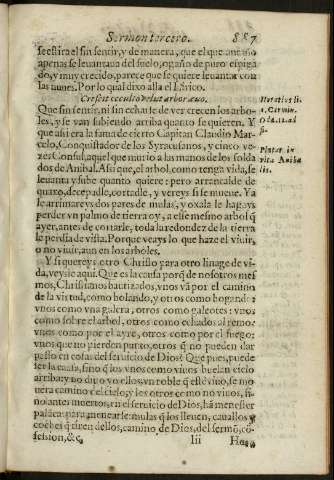 Sermon tercero. 887
se estira el sin sentir, y de manera, que el que antaño
apenas se leuantaua del suelo, ogaño de puro espiga
do, y muy crecido, parece que se quiere leuantar con
las nuues. Por lo qual dixo alla el Lirico.
Crescit occulto velut arbor æuo.
Que sin sentir, ni sin echarse de ver crecen los arbo
les, y se van subiendo arriba quanto se quieren. Y
que assi era la fama de cierto Capitan Claudio Mar-
celo, Conquistador de los Syracusanos, y cinco ve-
zes Consul, aquel que murio a las manos de los solda
dos de Anibal. Assi que, el arbol como tenga vida, se
leuanta y sube quanto quiere: pero arrancalde de
quaxo, descepalle, cortadle, y vereys si se mueue. Ya
le arrimareys dos pares de mulas, y oxala le hagays
perder vn palmo de tierra oy, a esse mismo arbol q̃
ayer, antes de cortarle, toda la redondez de la tierra
le perdia de vista. Porque veays lo que haze el viuir,
o no viuir, aun en los arboles.
Y si quereys, otro Christo para otro linage de vi-
da, veysle aqui. Que es la causa porq̃ de nosotros mes
mos, Christianos bautizados, vnos vã por el camino
de la virtud, como bolando, y otros como bogando:
vnos como vna galera, otros como galeotes: vnos
como sobre el arbol, otros como echados al remo:
vnos como por el ayre, otros como por el fuego:
vnos que no pierden punto, otros q̃ no pueden dar
passo en cosas del seruicio de Dios? Que pues, puede
ser la causa, sino q̃ los vnos como viuos buelan cielo
arriba: y no digo yo ellos, vn roble q̃ estè viuo, se mo
uera camino del cielo; y los otros como no viuos, si-
no antes muertos, en el seruicio de Dios, hã menester
palãca para menearse: mulas q̃ los lleuen, cauallos y
coches q̃ tiren dellos, camino de Dios, del sermõ, cõ-
fession, &c.
Iii
Horatius li
1. Carmin.
Oda.12.ad
fi.
Plutar. in
vita Aniba
lis.